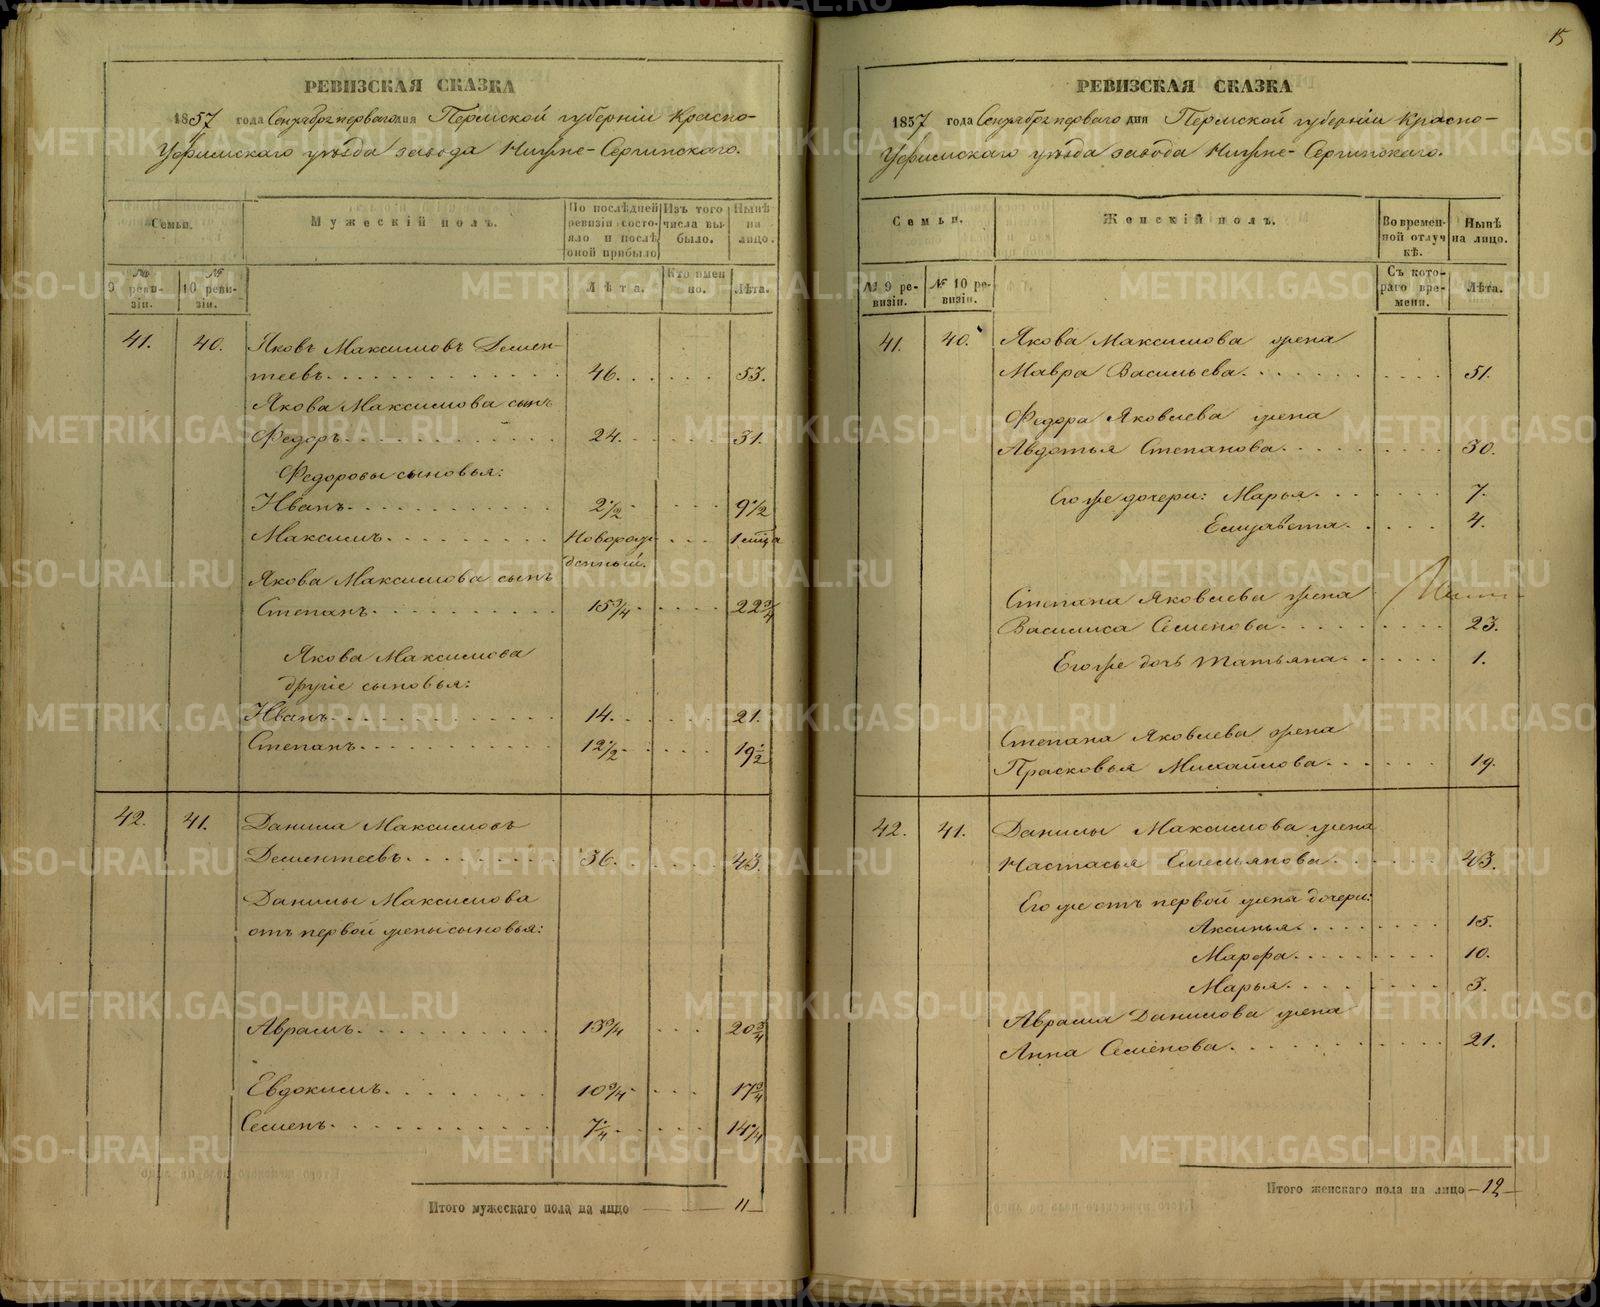 15
РЕВИЗСКАЯ СКАЗКА
1857 года Сентября перваго дня Пермской губерніи Красно-
Уфимскаго уѣзда завода Нижне-Сергинскаго.
Семьи.
Мужескій полъ.
По послѣдней ревизіи состояло и послѣ оной прибыло
Изъ того числа выбыло.
Нынѣ на лицо.
№ 9 ревизіи.
№ 10 ревизіи.
Лѣта.
Кто имен но.
Лѣта.
41. 40. Яковъ Максимовъ Демен-
теевъ. 46. 53.
Якова Максимова сынъ
Федоръ. 24. 31.
Федоровы сыновья:
Иванъ. 2 1/2 9 1/2
Максимъ. Новорож- 1 мѣсца
денный.
Якова Максимова сынъ
Степанъ. 15 3/4 22 3/4
Якова Максимова
другіе сыновья:
Иванъ. 14. 21.
Степанъ. 12 1/2 19 1/2
42. 41. Данила Максимовъ
Дементеевъ. 36. 43.
Данилы Максимова
отъ первой жены сыновья:
Аврамъ. 13 3/4 20 3/4
Евдокимъ. 10 3/4 17 3/4
Семенъ. 7 1/4 14 1/4
Итого мужескаго пола на лицо 11
РЕВИЗСКАЯ СКАЗКА
1857 года Сентября перваго дня Пермской губерніи Красно-
Уфимскаго уѣзда завода Нижне-Сергинскаго.
Семьи.
Женскій полъ.
Во временной отлучкѣ.
Нынѣ на лицо.
№ 9 ревизіи.
№ 10 ревизіи.
Съ котораго времени.
Лѣта.
41. 40. Якова Максимова жена
Мавра Васильева. 51.
Федора Яковлева жена
Авдотья Степанова. 30.
Его же дочери: Марья. 7.
Елизавета. 4.
Степана Яковлева жена
Василиса Семенова. 23.
Его же дочь Татьяна. 1.
Степана Яковлева жена
Прасковья Михайлова. 19.
42. 41. Данилы Максимова жена
Настасья Емельянова. 43.
Его же отъ первой жены дочери:
Аксинья. 15.
Марфа. 10.
Марья. 3.
Аврама Данилова жена
Анна Семенова. 21.
Итого женскаго пола на лицо 12
METRIKI.GASO-URAL.RU